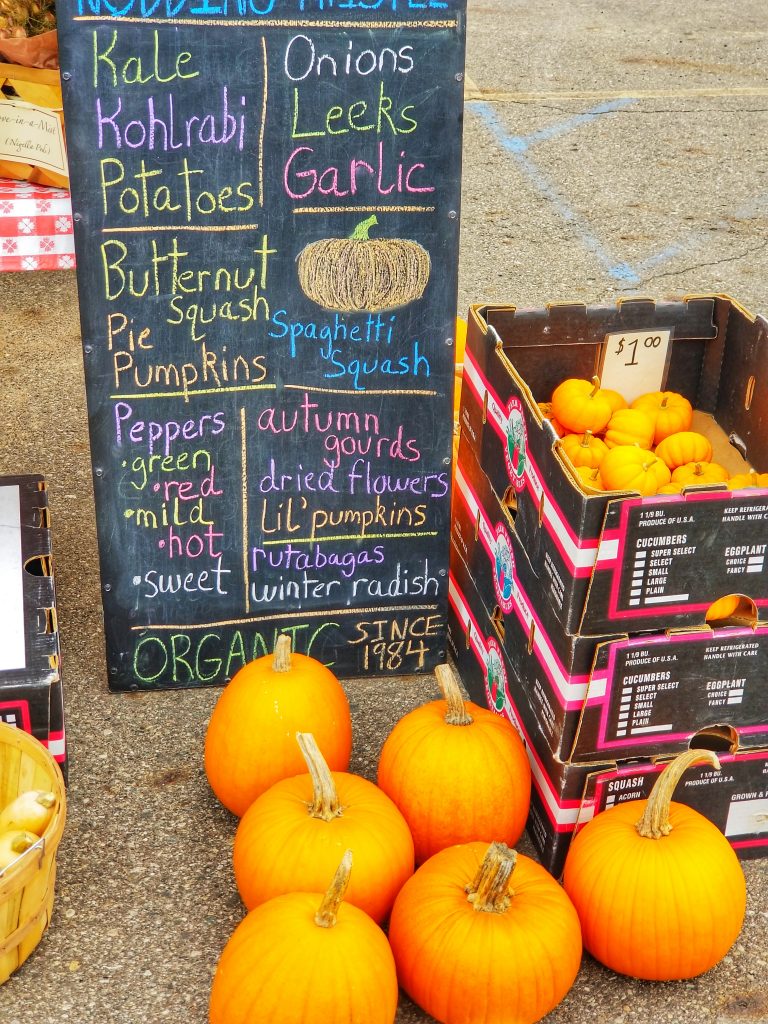 NODDING THISTLE
Kale
Kohlrabi
Potatoes
Onions
Leeks
Garlic
Butternut
Squash
Pie
Pumpkins
Spaghetti
Squash
Peppers
•green
•red
•mild
•hot
•sweet
autumn
gourds
dried flowers
Lil' pumpkins
rutabagas
winter radish
ORGANIC
SINCE
1984
ve-in-a-Mist
(Nigella Pods)
$1.00
1 1/9 BU.
PRODUCE OF U.S.A.
KEEP REFRIGERATED
HANDLE WITH CARE
CUCUMBERS
SUPER SELECT
SELECT
SMALL
LARGE
PLAIN
EGGPLANT
CHOICE
FANCY
1 1/9 BU.
PRODUCE OF U.S.A.
KEEP REFRIGERATED
HANDLE WITH CARE
CUCUMBERS
SUPER SELECT
SELECT
SMALL
LARGE
PLAIN
EGGPLANT
CHOICE
FANCY
1 1/9 BU.
PRODUCE OF U.S.A.
KEEP REFRIGERATED
HANDLE WITH CARE
SQUASH
ACORN
GROWN &